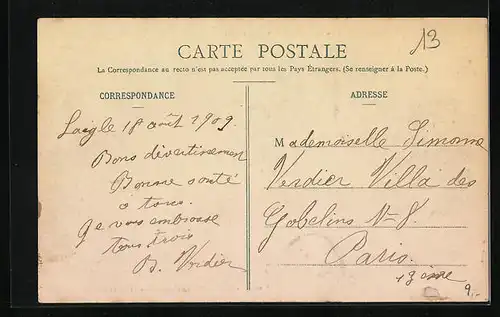 13
CARTE POSTALE
La Correspondance au recto n'est pas acceptée par tous les Pays Étrangers. (Se renseigner à la Poste.)
CORRESPONDANCE
Laigle 18 août 1909.
Bons divertissement
Bonne santé
à tous.
Je vous embrasse
tous trois
B. Verdier
ADRESSE
Mademoiselle Simonne
Verdier Villa des
Gobelins N-8.
Paris.
13 ème
9.-